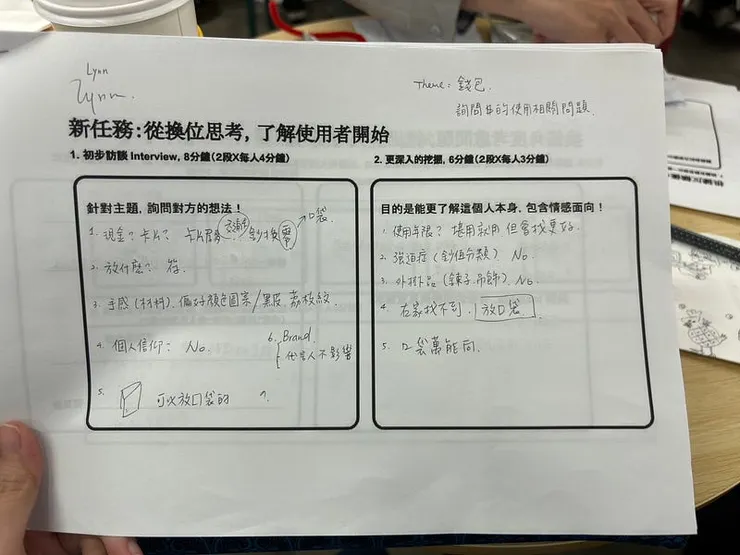 Lynn
Lynn
Theme: 錢包.
詢問其的使用相關問題.
新任務:從換位思考, 了解使用者開始
1. 初步訪談 Interview, 8分鐘(2段X每人4分鐘)
針對主題, 詢問對方的想法!
1. 現金? 卡片? 鈔換零 → 口袋.
2. 放什麼? 符.
3. 手感(材料). 偏好顏色圖案/黑皮. 荔枝紋.
4. 個人信仰: No.
5. 可以放口袋的
6. Brand
代言人不影響
2. 更深入的挖掘, 6分鐘(2段X每人3分鐘)
目的是能更了解這個人本身, 包含情感面向!
1. 使用年限? 堪用就用 但會找更好.
2. 強迫症(鈔值分類) No.
3. 外掛品(鍊子.吊飾). No.
4 在家找不到. 放口袋.
5. 口袋萬能